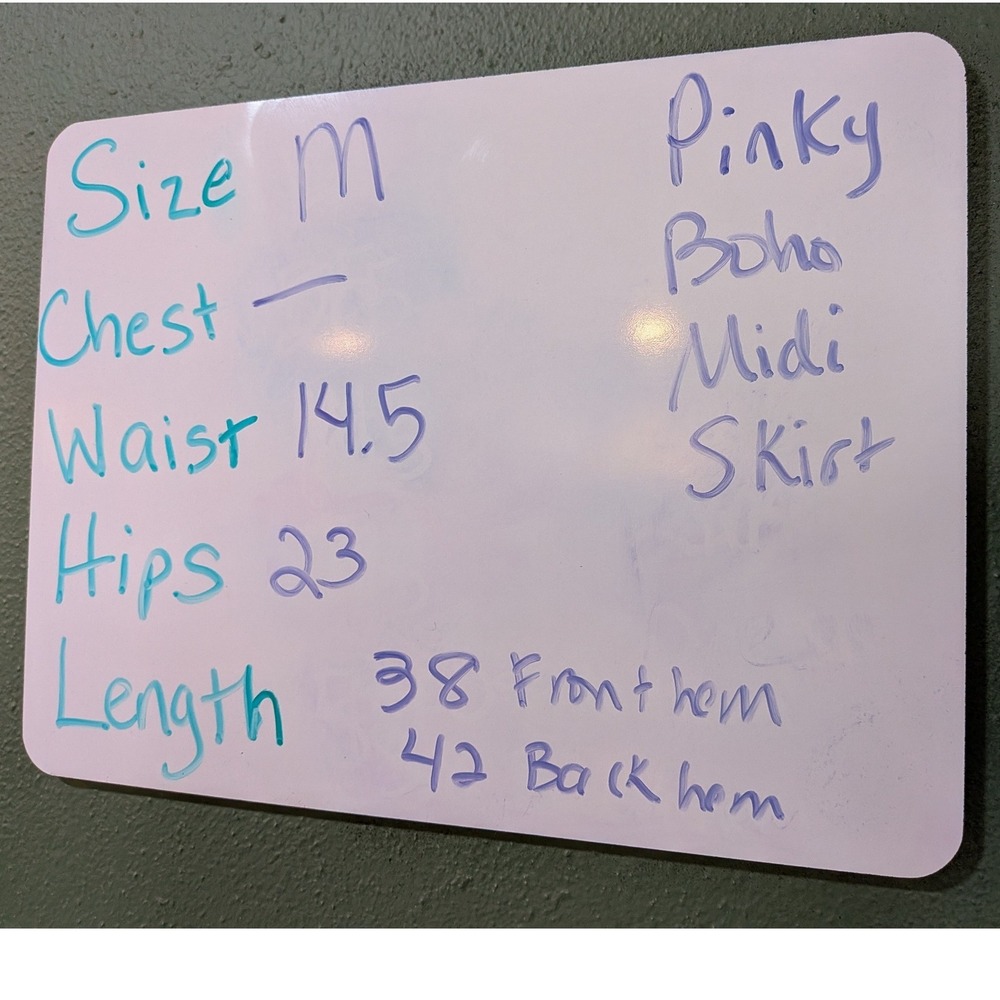 Size M
Chest —
Waist 14.5
Hips 23
Length 38 Front hem
42 Back hem
Pinky
Boho
Midi
Skirt